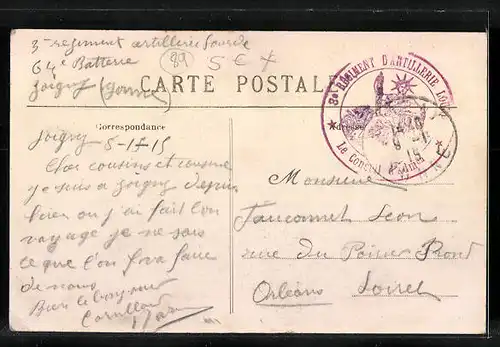 3e regiment artillerie lourde
64e Batterie
Joigny (Yonne)
(89)
5 € +
CARTE POSTALE
3e RÉGIMENT D'ARTILLERIE LOURDE
Le Conseil d'Adm
Correspondance
Adresse
Joigny 5-1-15
Cher cousins et cousine
je suis a joigny depuis
hier on j'ai fait bon
voyage je ne sais
ce que l'on fera faire
de nous
Bien le bonjour
Monsieur
Fauconnet Leon
rue du Poirier Rond
Orléans Loiret